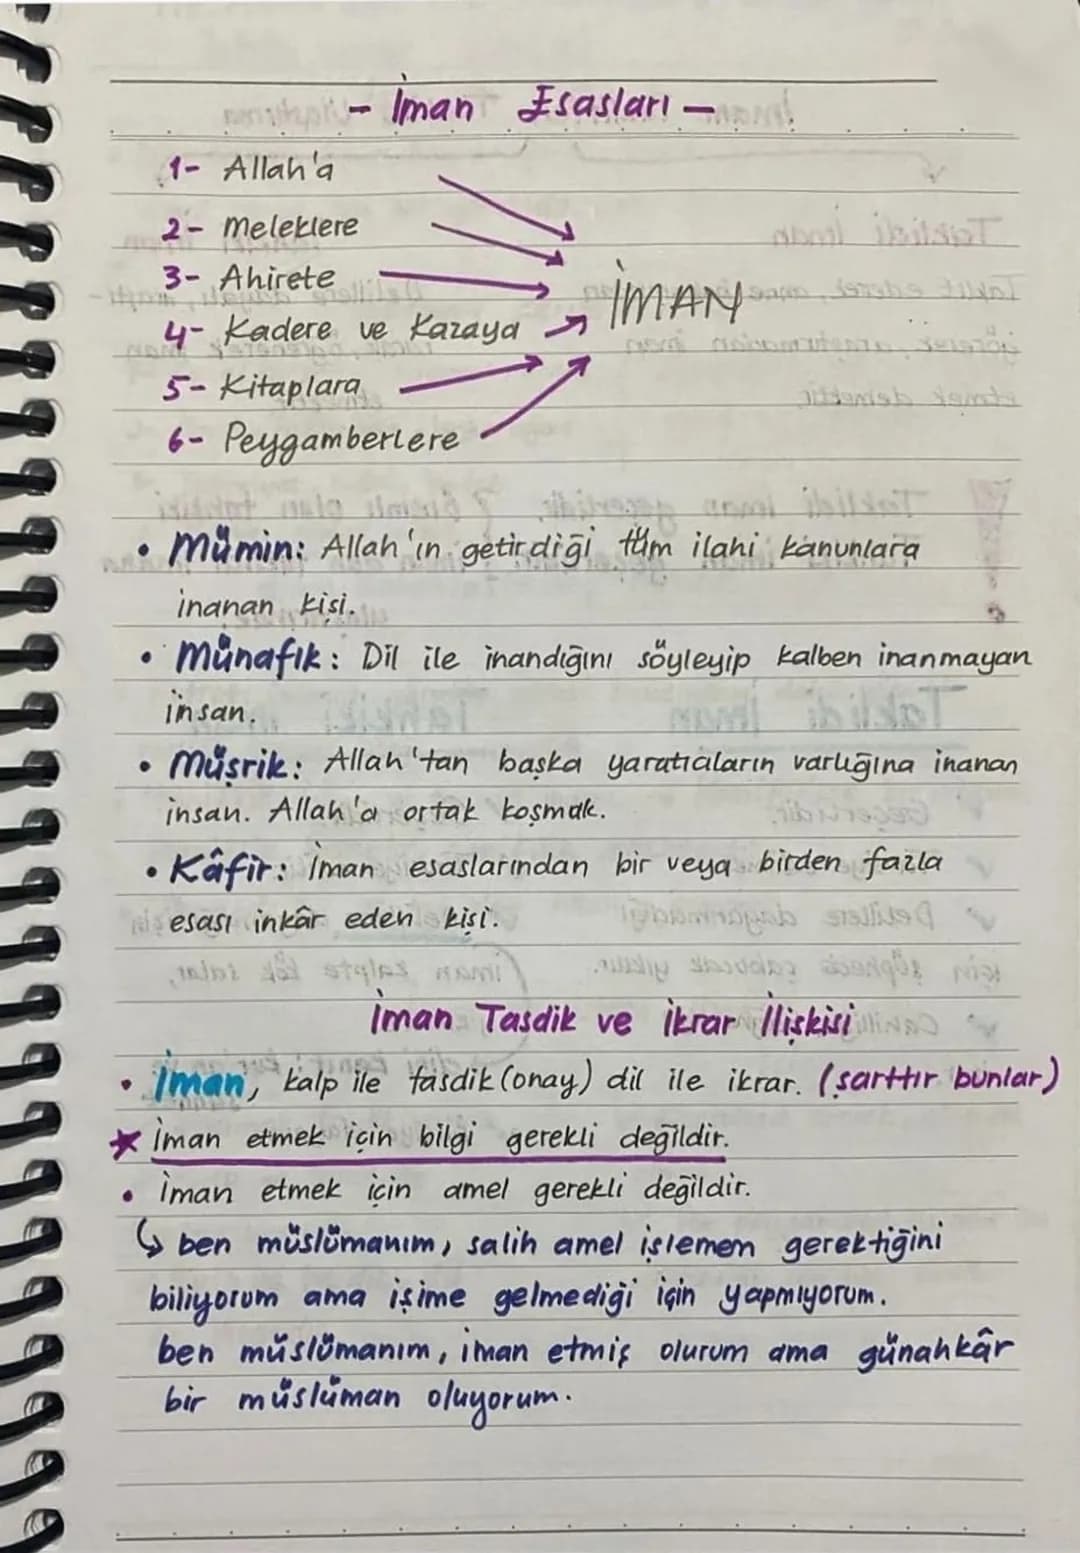 - İman Esasları -
1- Allah'a
2- Meleklere
3- Ahirete
4- Kadere ve Kazaya
5- Kitaplara
6- Peygamberlere
İMAN
• Mümin: Allah'ın getirdiği tüm ilahi kanunlara
inanan kişi.
• Münafık: Dil ile inandığını söyleyip kalben inanmayan
insan.
• Müşrik: Allah'tan başka yaratıcıların varlığına inanan
insan. Allah'a ortak koşmak.
• Kâfir: İman esaslarından bir veya birden fazla
esası inkâr eden kişi.
İman Tasdik ve İkrar İlişkisi
• İman, kalp ile tasdik (onay) dil ile ikrar. (şarttır bunlar)
★ İman etmek için bilgi gerekli değildir.
• İman etmek için amel gerekli değildir.
↳ ben müslümanım, salih amel işlemem gerektiğini
biliyorum ama işime gelmediği için yapmıyorum.
ben müslümanım, iman etmiş olurum ama günahkâr
bir müslüman oluyorum.